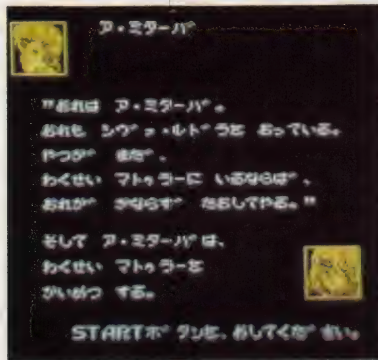 ア・ミターバ
"おれは ア・ミターバ。
おれも シヴァ・ルドラを おっている。
やつが まだ、
わくせい マトゥラーに いるならば、
おれが かならず たおしてやる。"
そして ア・ミターバは、
わくせい マトゥラーを
かいめつ する。
STARTボタンを、おしてください。